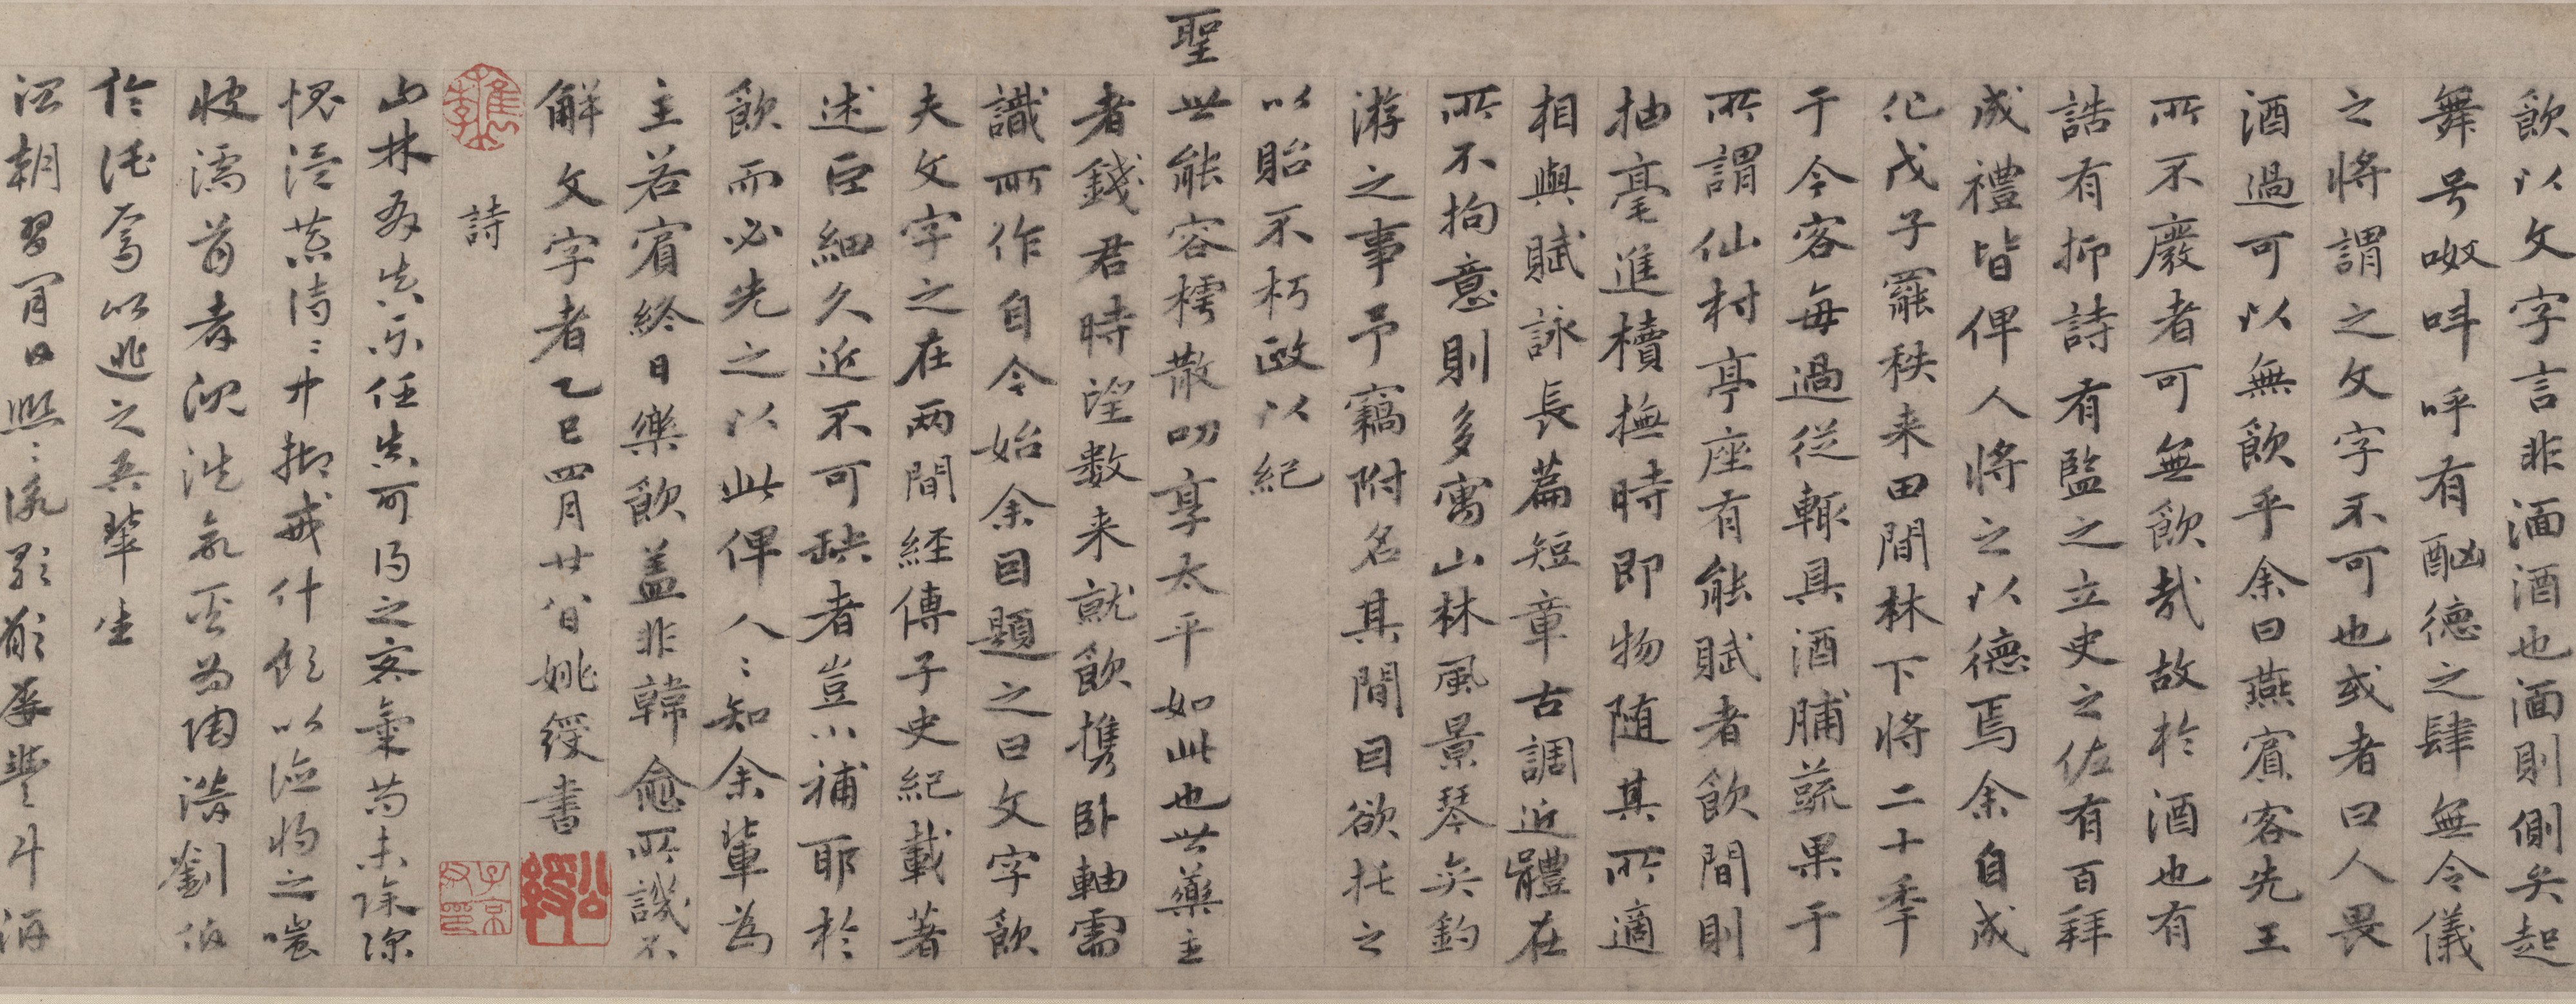 飲以文字言非湎酒也湎則側矣起
舞号呶呌呼有酗德之肆無令儀
之將謂之文字不可也或者曰人畏
酒過可以無飲乎余曰燕賓客先王
所不廢者可無飲哉故於酒也有
誥有抑詩有監之立史之佐有百拜
成禮皆俾人將之以德焉余自成
化戊子罷秩来田間林下將二十季
于今客每過從輙具酒脯蔬果于
所謂仙村亭座有能賦者飲間則
抽毫進牘撫時即物随其所適
相與賦詠長篇短章古調近體在
所不拘意則多寓山林風景琴奕釣
游之事予竊附名其間目欲托之
以貽不朽政以紀
聖
世能容樗散叨享太平如此也世藥主
者錢君時望数来就飲携卧軸需
識所作自今始余目題之曰文字飲
夫文字之在两間経傳子史紀載著
述巨細久近不可缺者豈小補耶於
飲而必先之以此俾人〻知余輩為
主若賓終日樂飲盖非韓愈所譏不
解文字者乙巳四月廿八日姚綬書
詩
山林 真樂任真可得之客氣苟未除深
愧 抑戒什 以 物之嗤
彼濡首者沉 氣 為陶潛劉伯
倫 焉以逃之吾輩坐
江朝 日照〻 斗酒